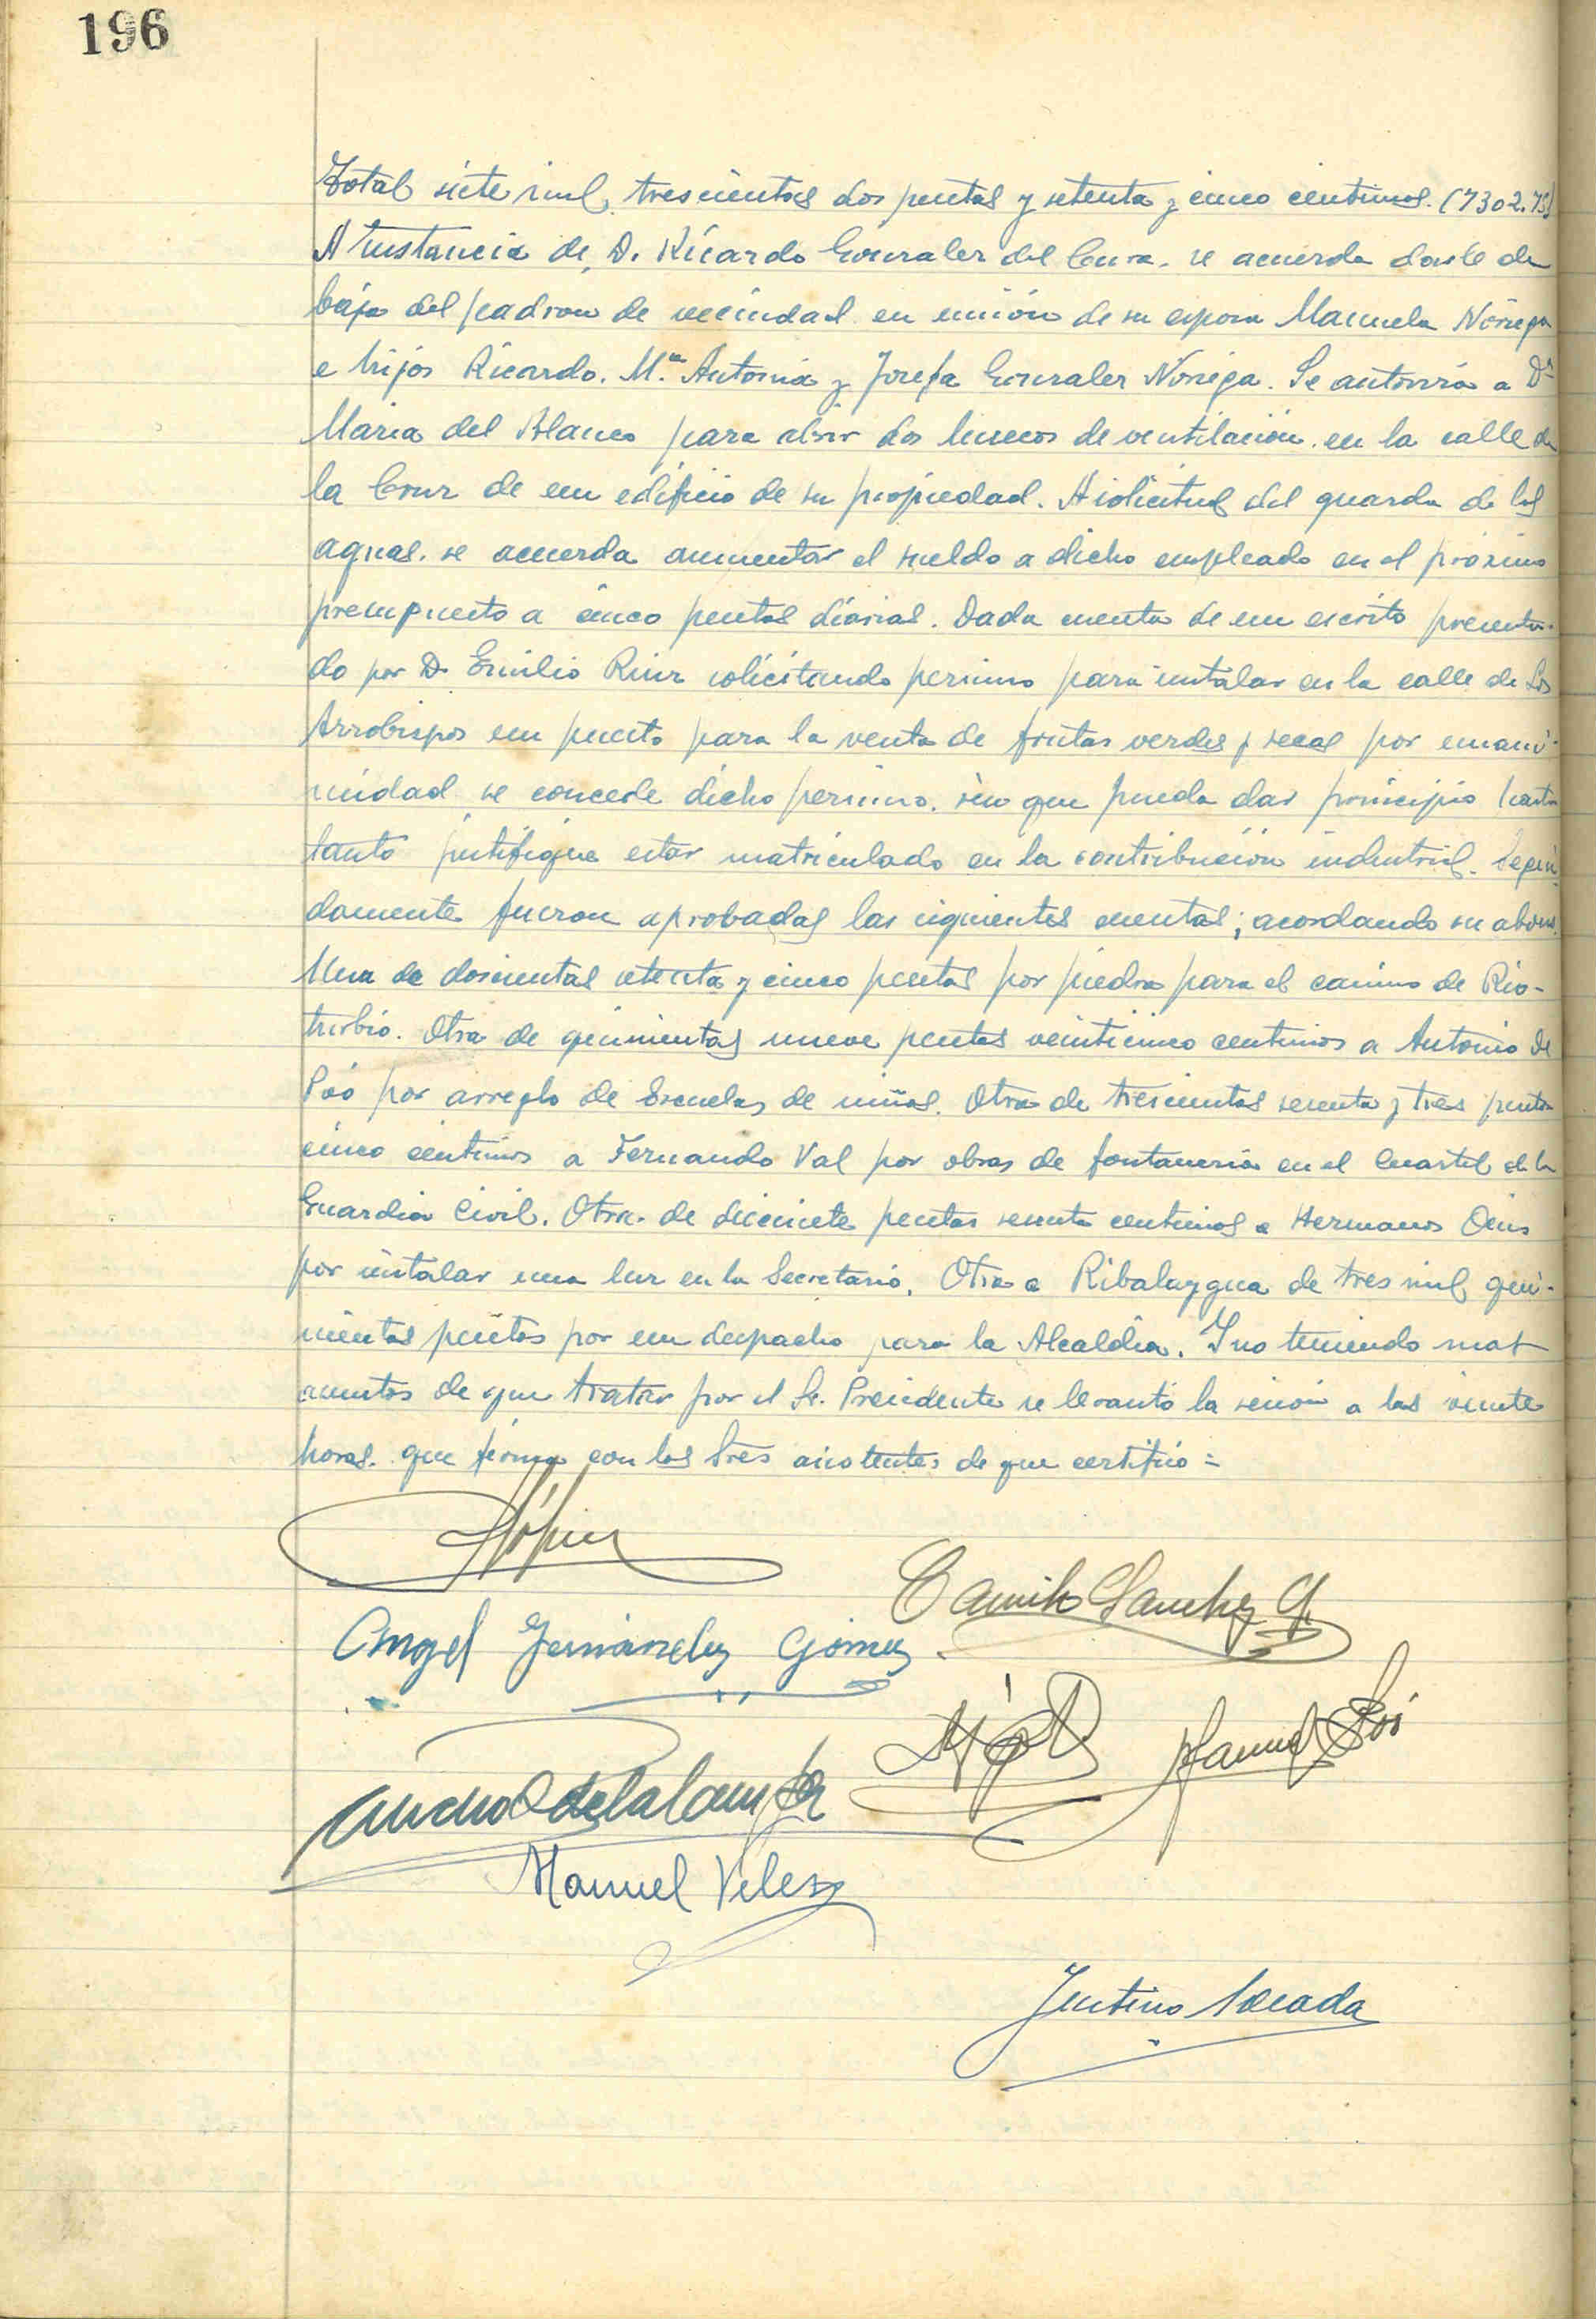 196
Total siete mil trescientas dos pesetas y setenta y cinco centimos. (7302.75)
A instancia de D. Ricardo Gonzalez del Cura. se acuerda darle de
baja del padron de vecindad en unión de su esposa Manuela Noriega
e hijos Ricardo. Mª Antonia y Josefa Gonzalez Noriega. Se autoriza a Dª
Maria del Blanco para abrir dos huecos de ventilación en la calle de
la Cruz de un edificio de su propiedad. A solicitud del guarda de las
aguas. se acuerda aumentar el sueldo a dicho empleado en el próximo
presupuesto a cinco pesetas diarias. Dada cuenta de un escrito presenta-
do por D. Emilio Ruiz solicitando permiso para instalar en la calle de Los
Arzobispos un puesto para la venta de frutas verdes y secas por unani-
midad se concede dicho permiso. sin que pueda dar principio hasta
tanto justifique estar matriculado en la contribución industrial. Segui-
damente fueron aprobadas las siguientes cuentas; acordando su abono.
Una de doscientas setenta y cinco pesetas por piedra para el camino de Rio-
turbio. Otra de quinientas nueve pesetas veinticinco centimos a Antonio de
Poó por arreglo de Escuelas de niñas. Otra de trescientas sesenta y tres pesetas
cinco centimos a Fernando Val por obras de fontaneria en el Cuartel de la
Guardia Civil. Otra. de diecisiete pesetas sesenta centimos a Hermanos
por instalar una luz en la Secretaria. Otra a Ribalaygua de tres mil qui-
nientas pesetas por un despacho para la Alcaldia. Y no teniendo mas
asuntos de que tratar por el Sr. Presidente se levantó la sesión a las veinte
horas. que firma con los Sres asistentes de que certifico =
Camilo Sanchez G.
Angel Fernandez Gómez
Manuel Poó
de la Lama
Manuel Velez
Justino Losada